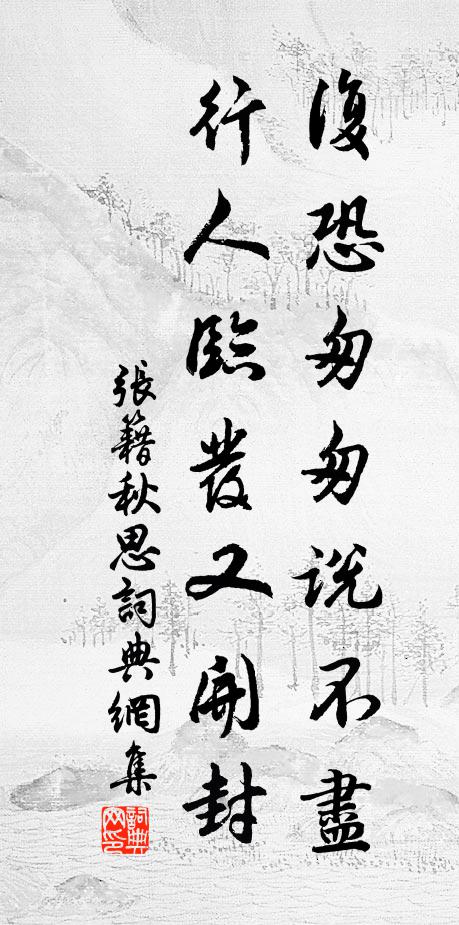 復恐匆匆説不盡
行人臨發又開封
張籍秋思詞典網集
詞典網印